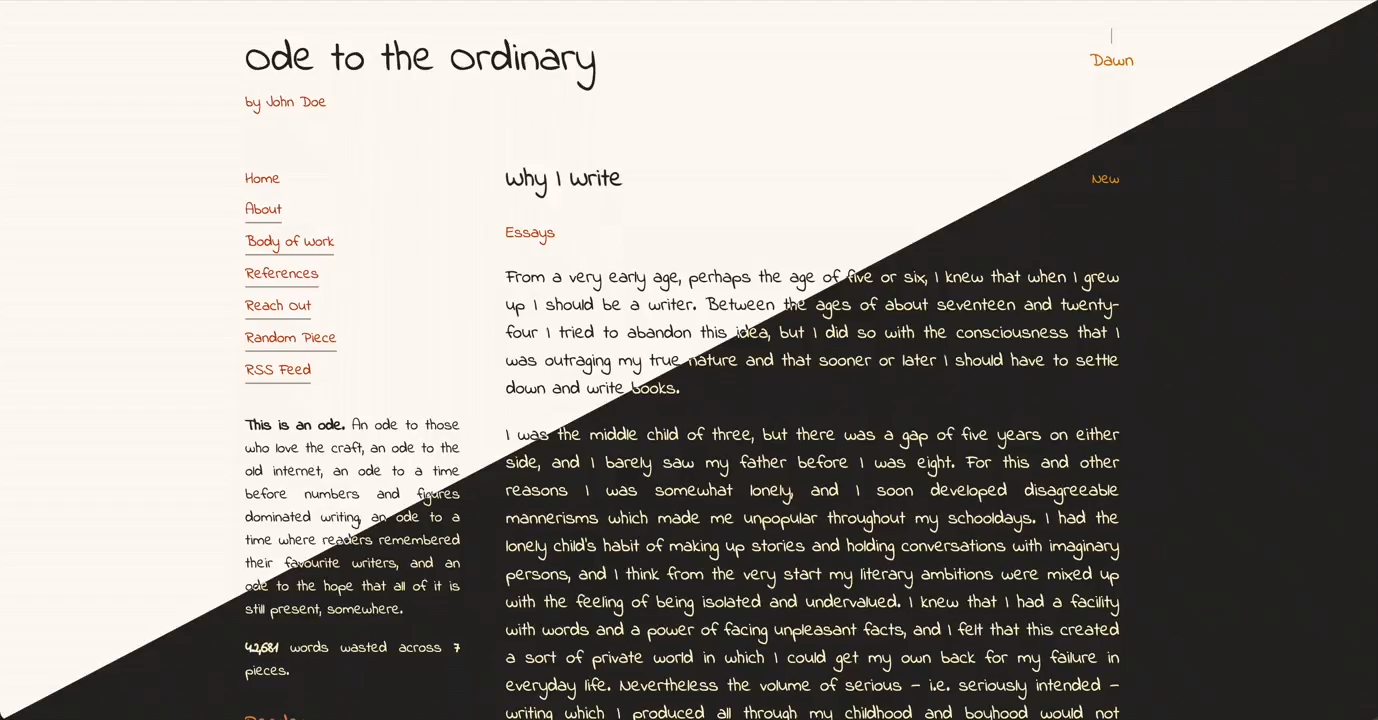 Ode to the Ordinary
Dawn
by John Doe
Home
About
Body of Work
References
Reach Out
Random Piece
RSS Feed
This is an ode. An ode to those
who love the craft, an ode to the
old internet, an ode to a time
before numbers and figures
dominated writing, an ode to a
time where readers remembered
their favourite writers, and an
ode to the hope that all of it is
still present, somewhere.
42,681 words wasted across 7
pieces.
Why I Write
New
Essays
From a very early age, perhaps the age of five or six, I knew that when I grew
up I should be a writer. Between the ages of about seventeen and twenty-
four I tried to abandon this idea, but I did so with the consciousness that I
was outraging my true nature and that sooner or later I should have to settle
down and write books.
I was the middle child of three, but there was a gap of five years on either
side, and I barely saw my father before I was eight. For this and other
reasons I was somewhat lonely, and I soon developed disagreeable
mannerisms which made me unpopular throughout my schooldays. I had the
lonely child's habit of making up stories and holding conversations with imaginary
persons, and I think from the very start my literary ambitions were mixed up
with the feeling of being isolated and undervalued. I knew that I had a facility
with words and a power of facing unpleasant facts, and I felt that this created
a sort of private world in which I could get my own back for my failure in
everyday life. Nevertheless the volume of serious – i.e. seriously intended –
writing which I produced all through my childhood and boyhood would not